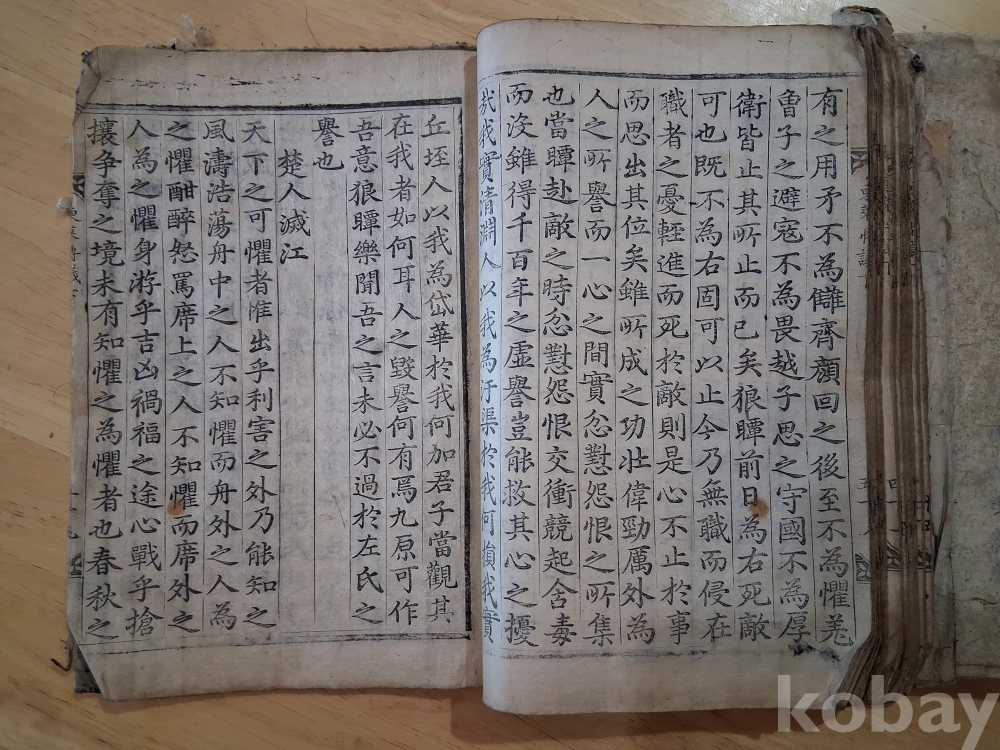 有之用矛不為儺齊顏回之後至不為懼羌
曾子之避寇不為畏越子思之守國不為厚
衛皆止其所止而已矣狼瞫前日為右死敵
可也既不為右固可以止今乃無職而侵在
職者之憂輕進而死於敵則是心不止於事
而思出其位矣雖所成之功壯偉勁厲外為
人之所譽而一心之間實忿懟怨恨之所集
也當瞫赴敵之時忿懟怨恨交衝競起舍毒
而沒雖得千百年之虛譽豈能救其心之擾
哉我實清淵人以我為汙渠於我何損我實
丘垤人以我為岱華於我何加君子當觀其
在我者如何耳人之毀譽何有焉九原可作
吾意狼瞫樂聞吾之言未必不過於左氏之
譽也
楚人滅江
天下之可懼者惟出乎利害之外乃能知之
風濤浩蕩舟中之人不知懼而舟外之人為
之懼酣醉怒罵席上之人不知懼而席外之
人為之懼身游乎吉凶禍福之途心戰乎搶
攘爭奪之境未有知懼之為懼者也春秋之
kobay